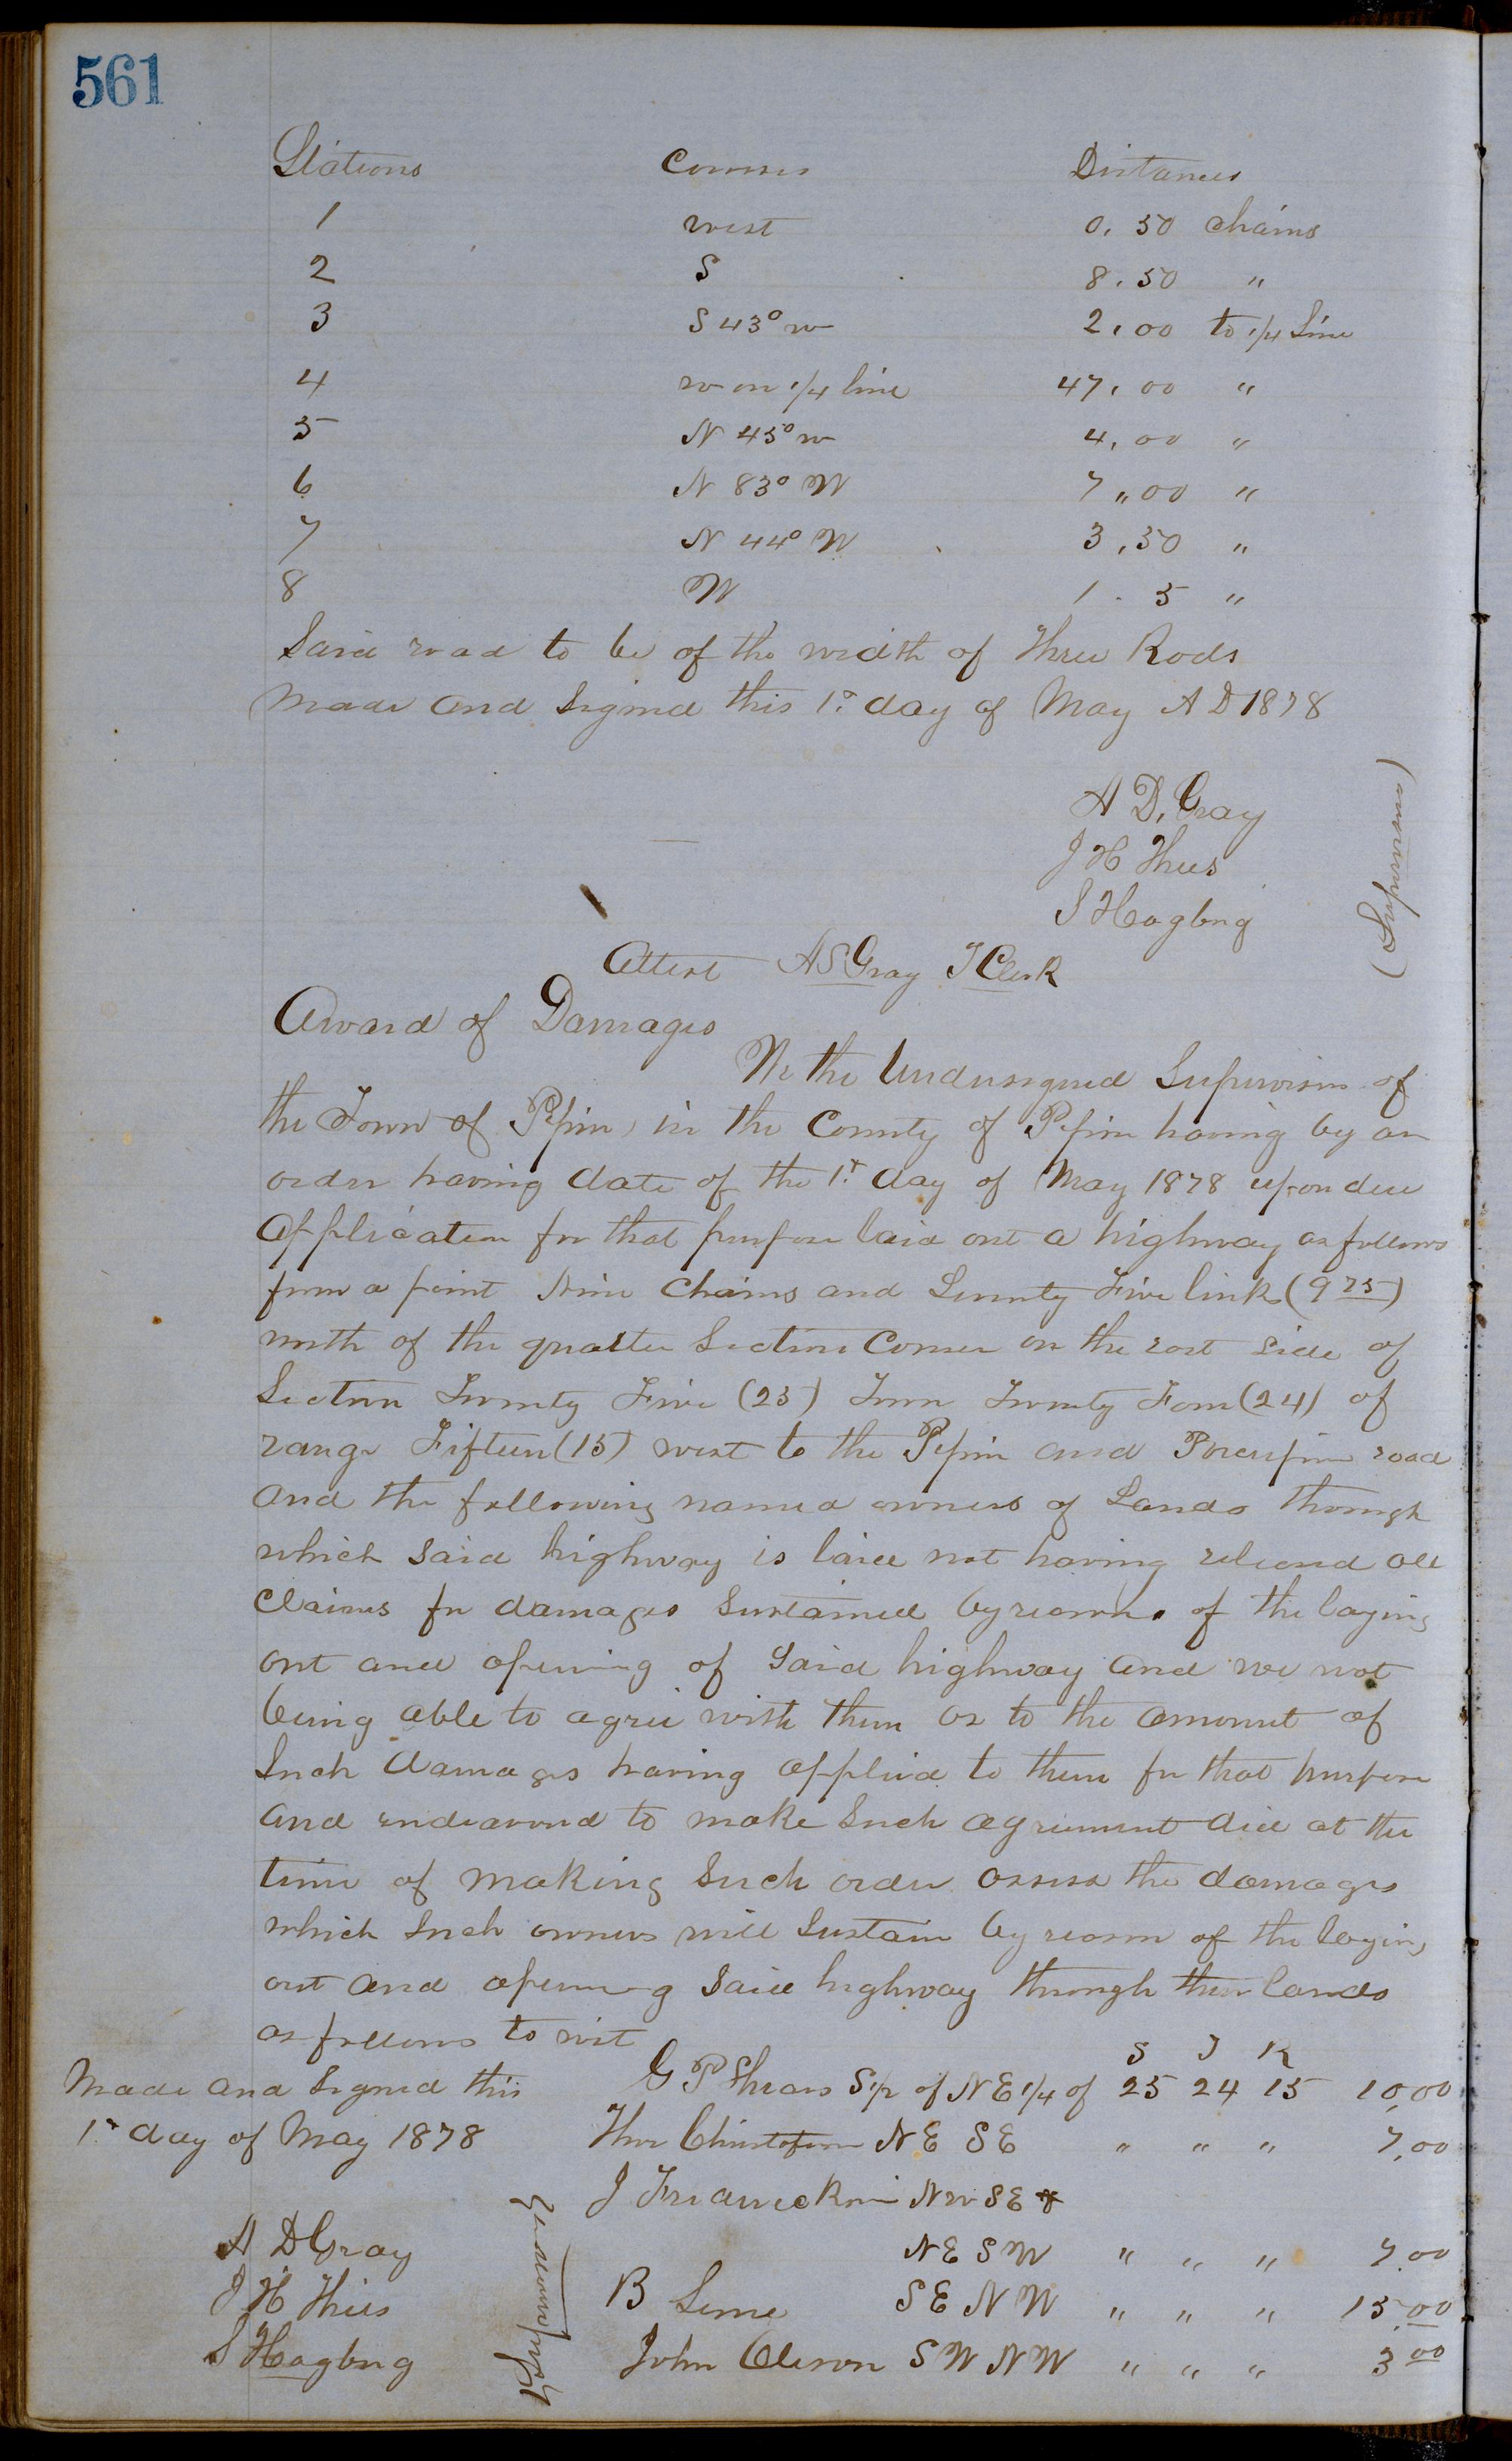 561
Stations Courses Distances
1 west 0.50 chains
2 S 8.50 "
3 S 43° w 2.00 to 1/4 Line
4 w on 1/4 line 47.00 "
5 N 45° w 4.00 "
6 N 83° W 7.00 "
7 N 44° W 3.50 "
8 W 1.5 "
Said road to be of the width of Three Rods
Made and Signed this 1st day of May A D 1878
A D. Gray
J H Thies
S Hagberg
(Supervisors)
Attest A S Gray T Clerk
Award of Damages
We the Undersigned Supervisors of
the Town of Pepin, in the County of Pepin having by an
order having date of the 1st day of May 1878 upon due
Application for that purpose laid out a highway as follows
from a point Nine Chains and Seventy Five links (9 75)
north of the quarter Section Corner on the east side of
Section Twenty Five (25) Town Twenty Four (24) of
range Fifteen (15) west to the Pepin and Porcupine road
and the following named owners of Lands through
which said highway is laid not having released all
Claims for damages Sustained by reason of the laying
out and opening of said highway and we not
being able to agree with them as to the amount of
Such damages having applied to them for that purpose
and endeavored to make Such agreement did at the
time of making Such order assess the damages
which Such owners will Sustain by reason of the laying
out and opening said highway through their lands
as follows to wit
S T R
G P Shears S 1/2 of N E 1/4 of 25 24 15 10,00
Made and Signed this
1st day of May 1878
Christofson N E S E " " " 7,00
J N W S E of
N E S W " " " 7.00
A D Gray
J H Thies
S Hagberg
Supervisors
B S E N W " " " 15.00
John Oleson S W N W " " " 3 00